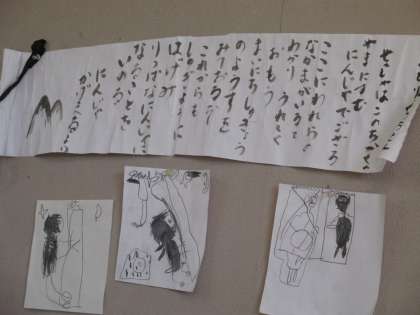 せっしゃ このちかくの
やまにすむ
にんじゃでござる
ここにわれらの
なかまがいると
わかり うれしく
おもう
まいにちしゅぎょう
のようすを
みておるぞ
これからも
しゅぎょうに
はげみ
りっぱなにんじゃに
なることを
いのる
にんじゃ